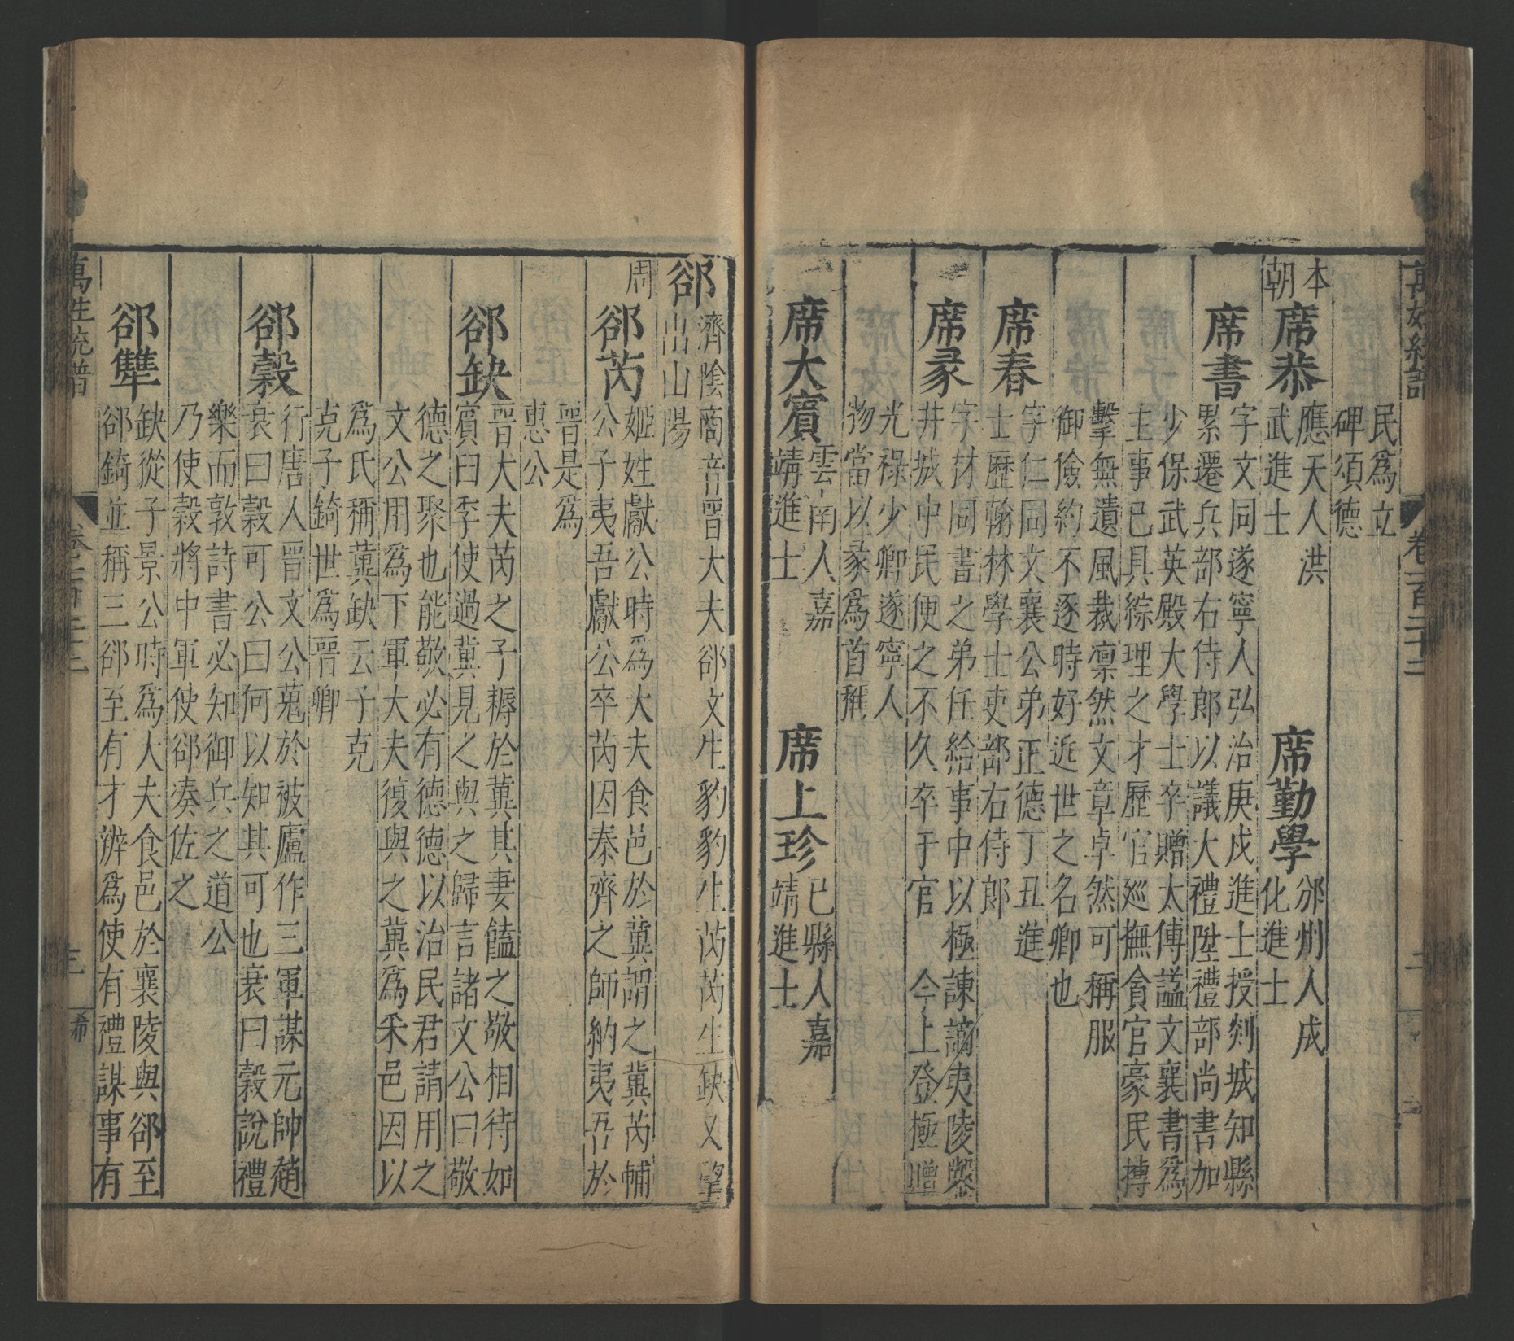 萬姓統譜 卷一百二十二 二
民爲立
碑頌德
本朝
席恭 應天人洪
武進士
席勤學 邠州人成
化進士
席書 字文同遂寧人弘治庚戌進士授剡城知縣
累遷兵部右侍郎以議大禮陞禮部尚書加
少保武英殿大學士卒贈太傅謚文襄書爲
主事已具綜理之才歷官巡撫貪官豪民搏
擊無遺風裁凛然文章卓然可稱服
御儉約不逐時好近世之名卿也
席春 字仁同文襄公弟正德丁丑進
士歷翰林學士吏部右侍郎
席彖 字材同書之弟任給事中以極諫謫夷陵鑿
井城中民便之不久卒于官 今上登極贈
光祿少卿遂寧人
物當以彖爲首稱
席大賓 雲南人嘉
靖進士
席上珍 巴縣人嘉
靖進士
郤 濟陰商音晉大夫郤文生豹豹生芮芮生缺又望
出山陽
周
郤芮 姬姓獻公時爲大夫食邑於冀謂之冀芮輔
公子夷吾獻公卒芮因秦齊之師納夷吾於
晉是爲
惠公
郤缺 晉大夫芮之子耨於冀其妻饁之敬相待如
賓曰季使過冀見之與之歸言諸文公曰敬
德之聚也能敬必有德德以治民君請用之
文公用爲下軍大夫復與之冀爲采邑因以
爲氏稱冀缺云子克
克子錡世爲晉卿
郤縠 行唐人晉文公蒐於被廬作三軍謀元帥趙
衰曰縠可公曰何以知其可也衰曰縠說禮
樂而敦詩書必知御兵之道公
乃使縠將中軍使郤溱佐之
郤犨 缺從子景公時爲人夫食邑於襄陵與郤至
郤錡並稱三郤至有才辨爲使有禮謀事有
萬姓統譜 卷一百二十二 三